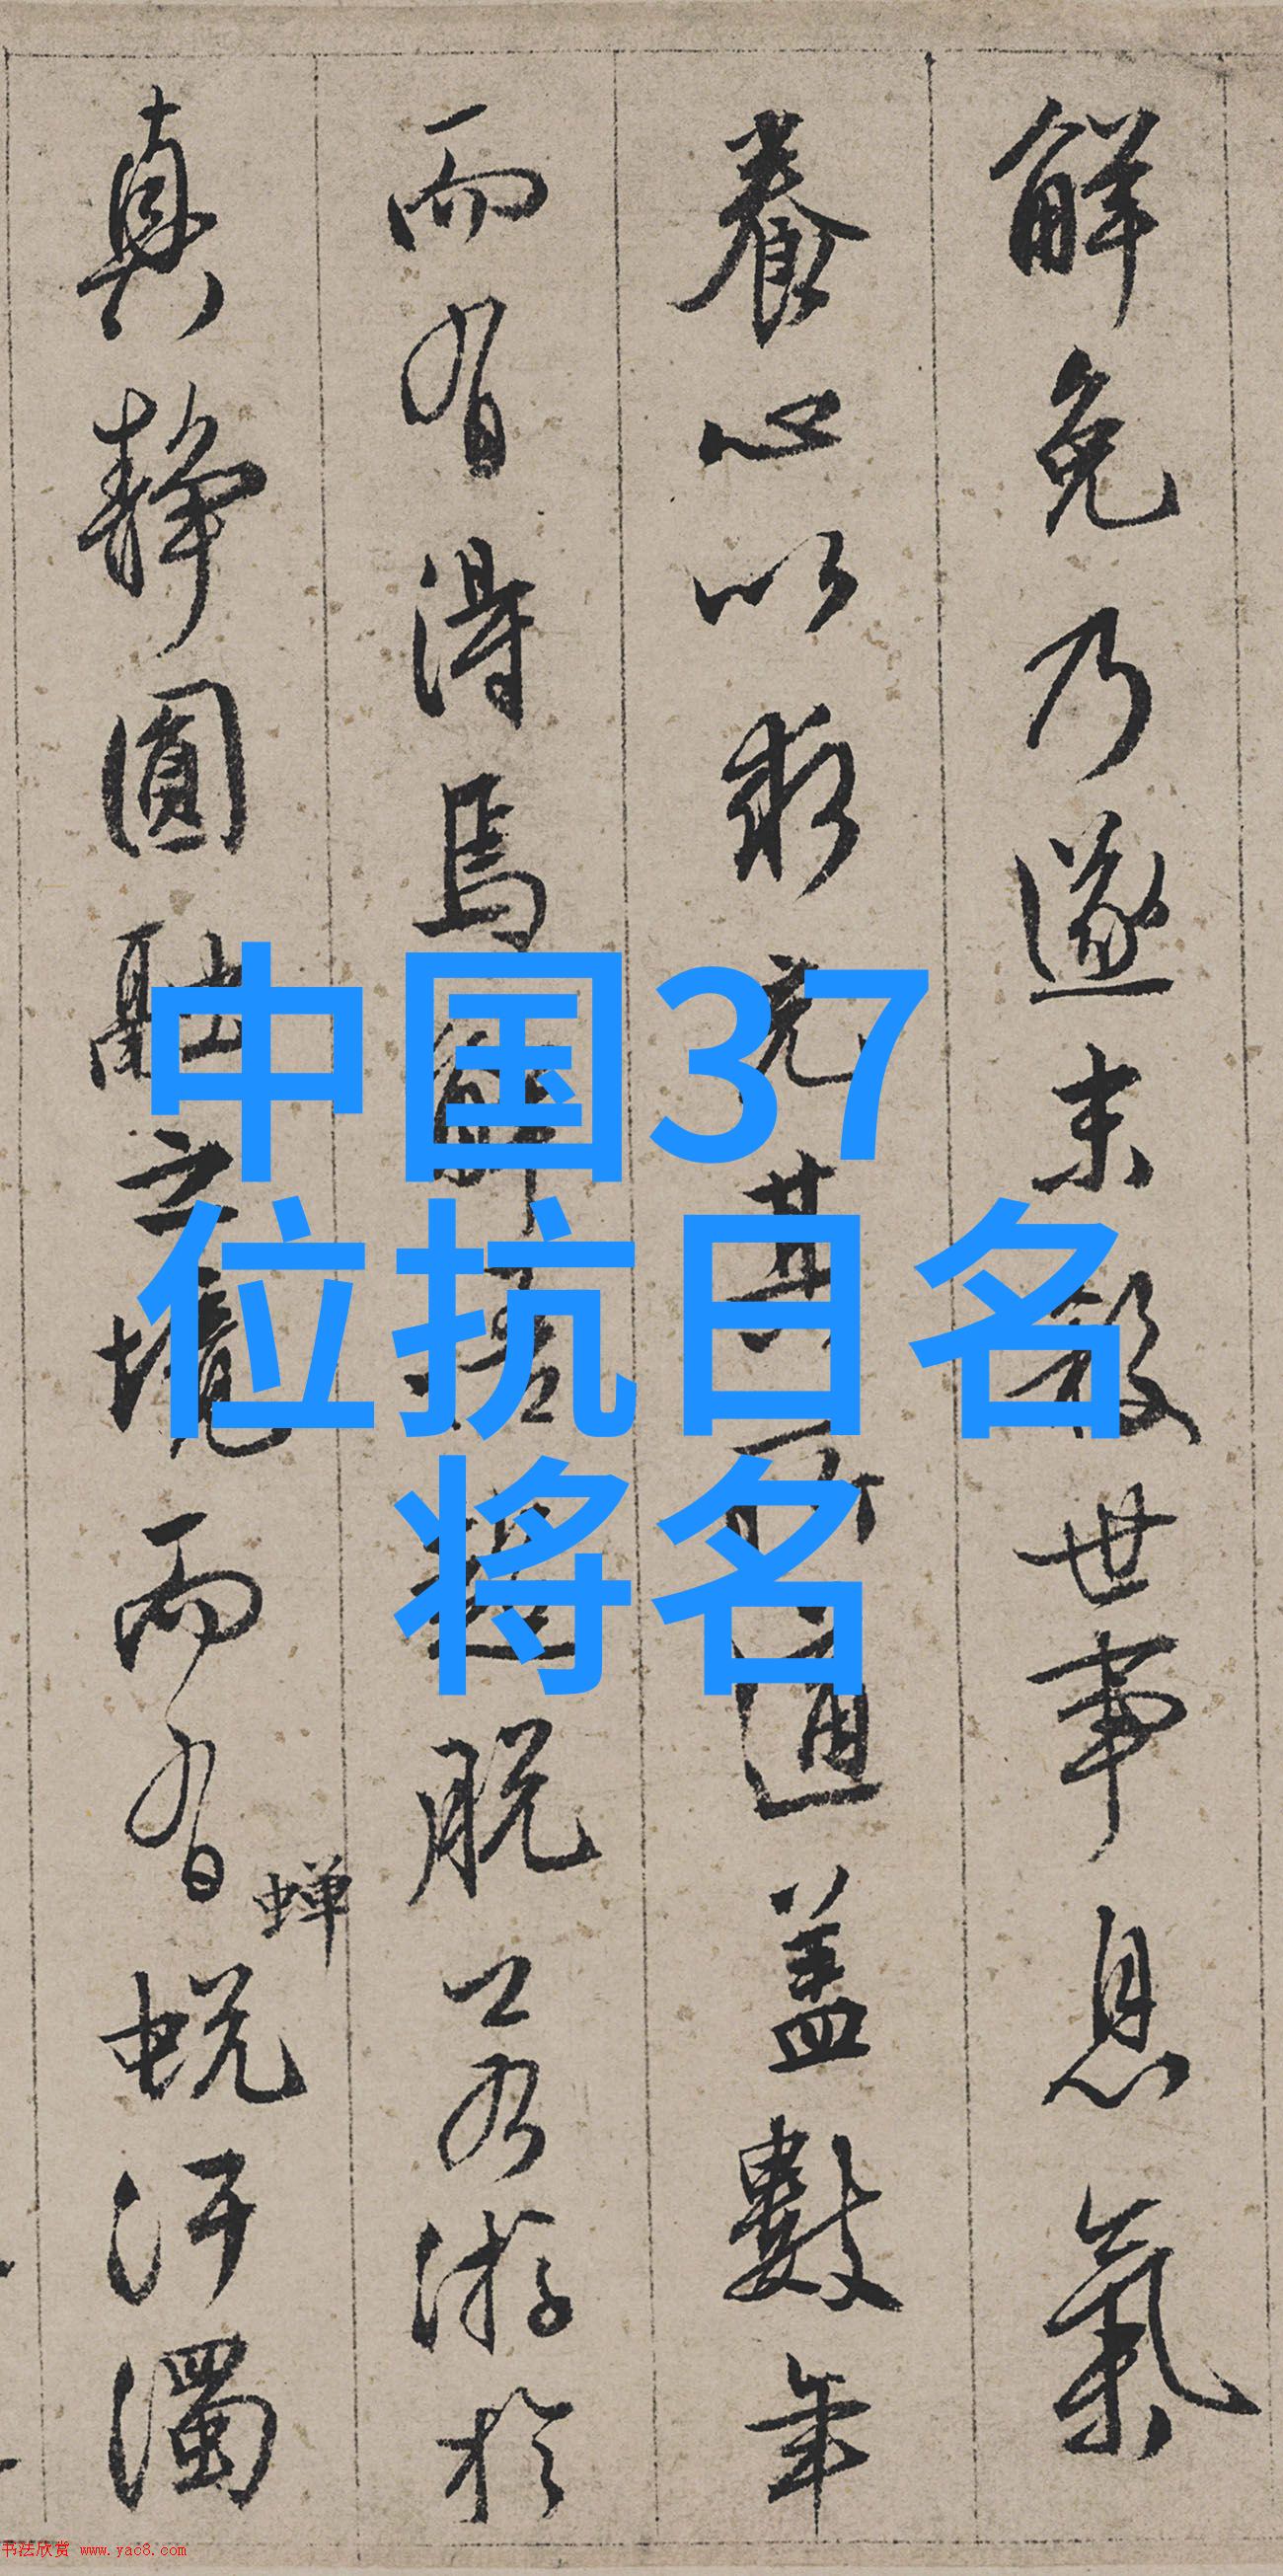 中国37
位抗日名
将名
解免乃遂末殺世事息氣
養心以求充其所適蓋數年
而有得焉解悟超脫乃游於
真靜圓融之境而有蟬蛻汙濁
书法欣赏 www.yac8.com